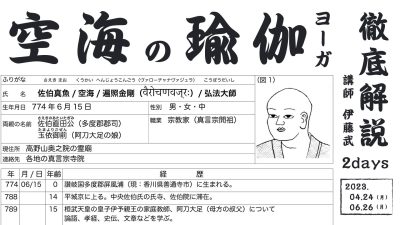 空海の瑜伽
ヨーガ
徹底解説
講師 伊藤武
2days
2023.
04.24(月)
06.26(月)
ふりがな
さえき まお くうかい へんじょうこんごう(ヴァローチャナヴァジュラ) こうぼうだいし
氏 名 佐伯真魚 / 空海 / 遍照金剛(वैरोचणवज्रः) / 弘法大師
生年月日 774年6月15日
性別 男・女・中
両親の名前
さえきのあたいたぎみ
佐伯直田公(多度郡郡司)
たまよりごぜん
玉依御前(阿刀大足の娘)
職業 宗教家(真言宗開祖)
現住所 高野山奥之院の霊廟
連絡先 各地の真言宗寺院
(図1)
年 月/日 年齢 経 歴
774 06/15 0 讃岐国多度郡屏風浦(現:香川県善通寺市)に生まれる。
788 14 平城京に上る。中央佐伯氏の氏寺、佐伯院に滞在。
789 15 桓武天皇の皇子伊予親王の家庭教師、阿刀大足(母方の叔父)について
論語、孝経、史伝、文章などを学ぶ。